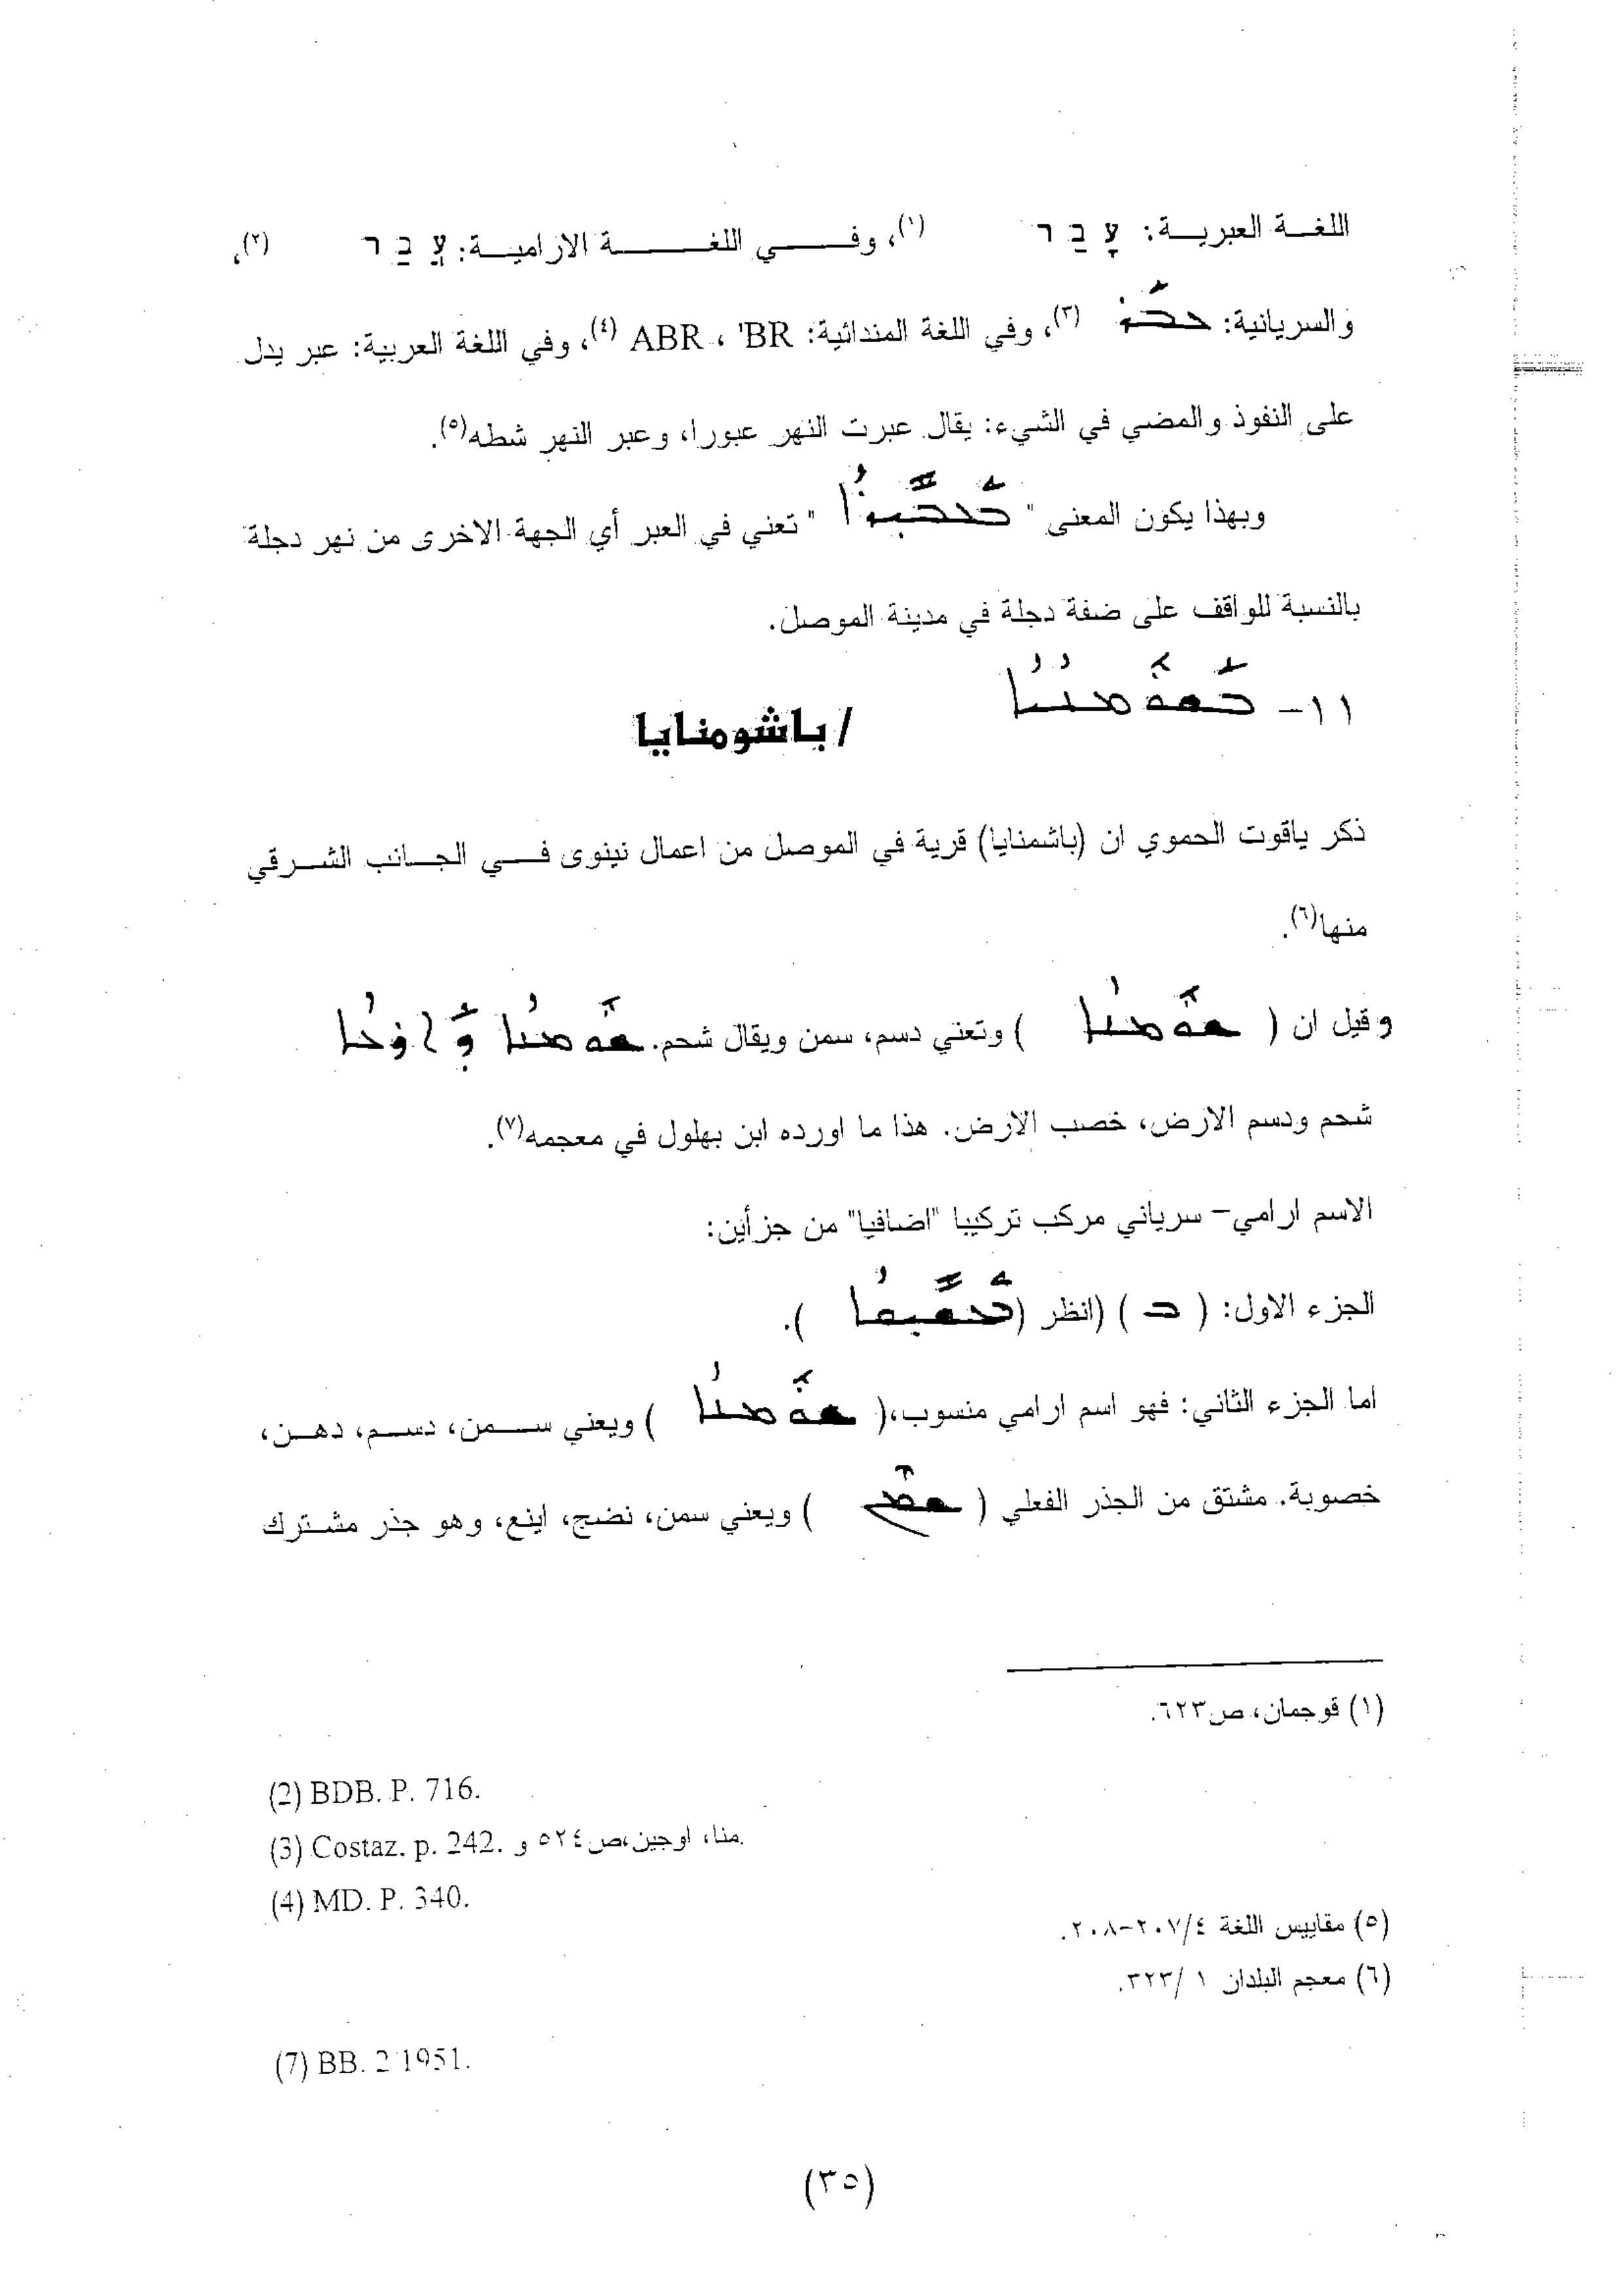 اللغة العبرية: עָבַר (١)، وفي اللغة الارامية: עֲבַר (٢)،
والسريانية: ܥܒܪ (٣)، وفي اللغة المندائية: ABR ، 'BR (٤)، وفي اللغة العربية: عبر يدل
على النفوذ والمضي في الشيء: يقال عبرت النهر عبورا، وعبر النهر شطه(٥).
وبهذا يكون المعنى " ܒܥܒܝܪܐ " تعني في العبر أي الجهة الاخرى من نهر دجلة
بالنسبة للواقف على ضفة دجلة في مدينة الموصل.
١١- ܒܫܘܡܢܝܐ / باشومنايا
ذكر ياقوت الحموي ان (باشمنايا) قرية في الموصل من اعمال نينوى في الجانب الشرقي
منها(٦).
وقيل ان ( ܫܘܡܢܐ ) وتعني دسم، سمن ويقال شحم. ܫܘܡܢܐ ܕܐܪܥܐ
شحم ودسم الارض، خصب الارض. هذا ما اورده ابن بهلول في معجمه(٧).
الاسم ارامي- سرياني مركب تركيبا "اضافيا" من جزأين:
الجزء الاول: ( ܒ ) (انظر ( ).
اما الجزء الثاني: فهو اسم ارامي منسوب،( ܫܘܡܢܐ ) ويعني سمن، دسم، دهن،
خصوبة. مشتق من الجذر الفعلي ( ܫܡܢ ) ويعني سمن، نضج، اينع، وهو جذر مشترك
(١) قوجمان، ص٦٢٣.
(2) BDB. P. 716.
(3) Costaz. p. 242. و منا، اوجين،ص٥٢٤.
(4) MD. P. 340.
(٥) مقاييس اللغة ٤/٢٠٧-٢٠٨.
(٦) معجم البلدان ١ /٣٢٣.
(7) BB. 2 1951.
(٣٥)